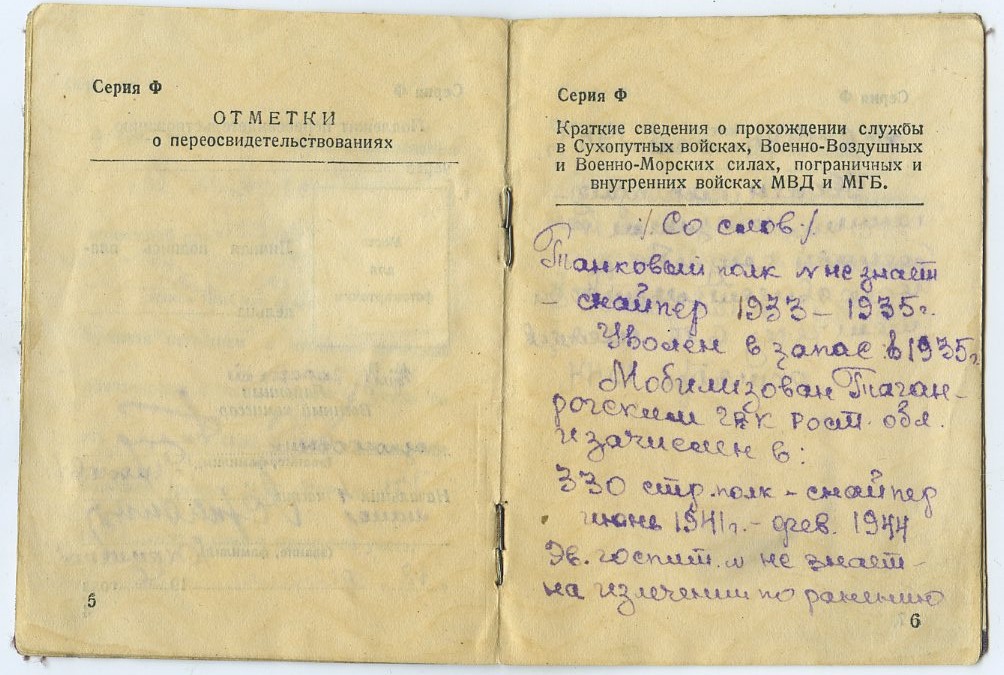 Серия Ф
ОТМЕТКИ
о переосвидетельствованиях
5
Серия Ф
Краткие сведения о прохождении службы
в Сухопутных войсках, Военно-Воздушных
и Военно-Морских силах, пограничных и
внутренних войсках МВД и МГБ.
/Со слов/
Танковый полк № не знает
– снайпер 1933 – 1935г.
Уволен в запас в 1935г
Мобилизован Таган-
рогским ГВК Рост. обл.
и зачислен в:
330 стр. полк – снайпер
июнь 1941г. – фев. 1944
Эв. госпит. № не знает –
на излечении по ранению
6